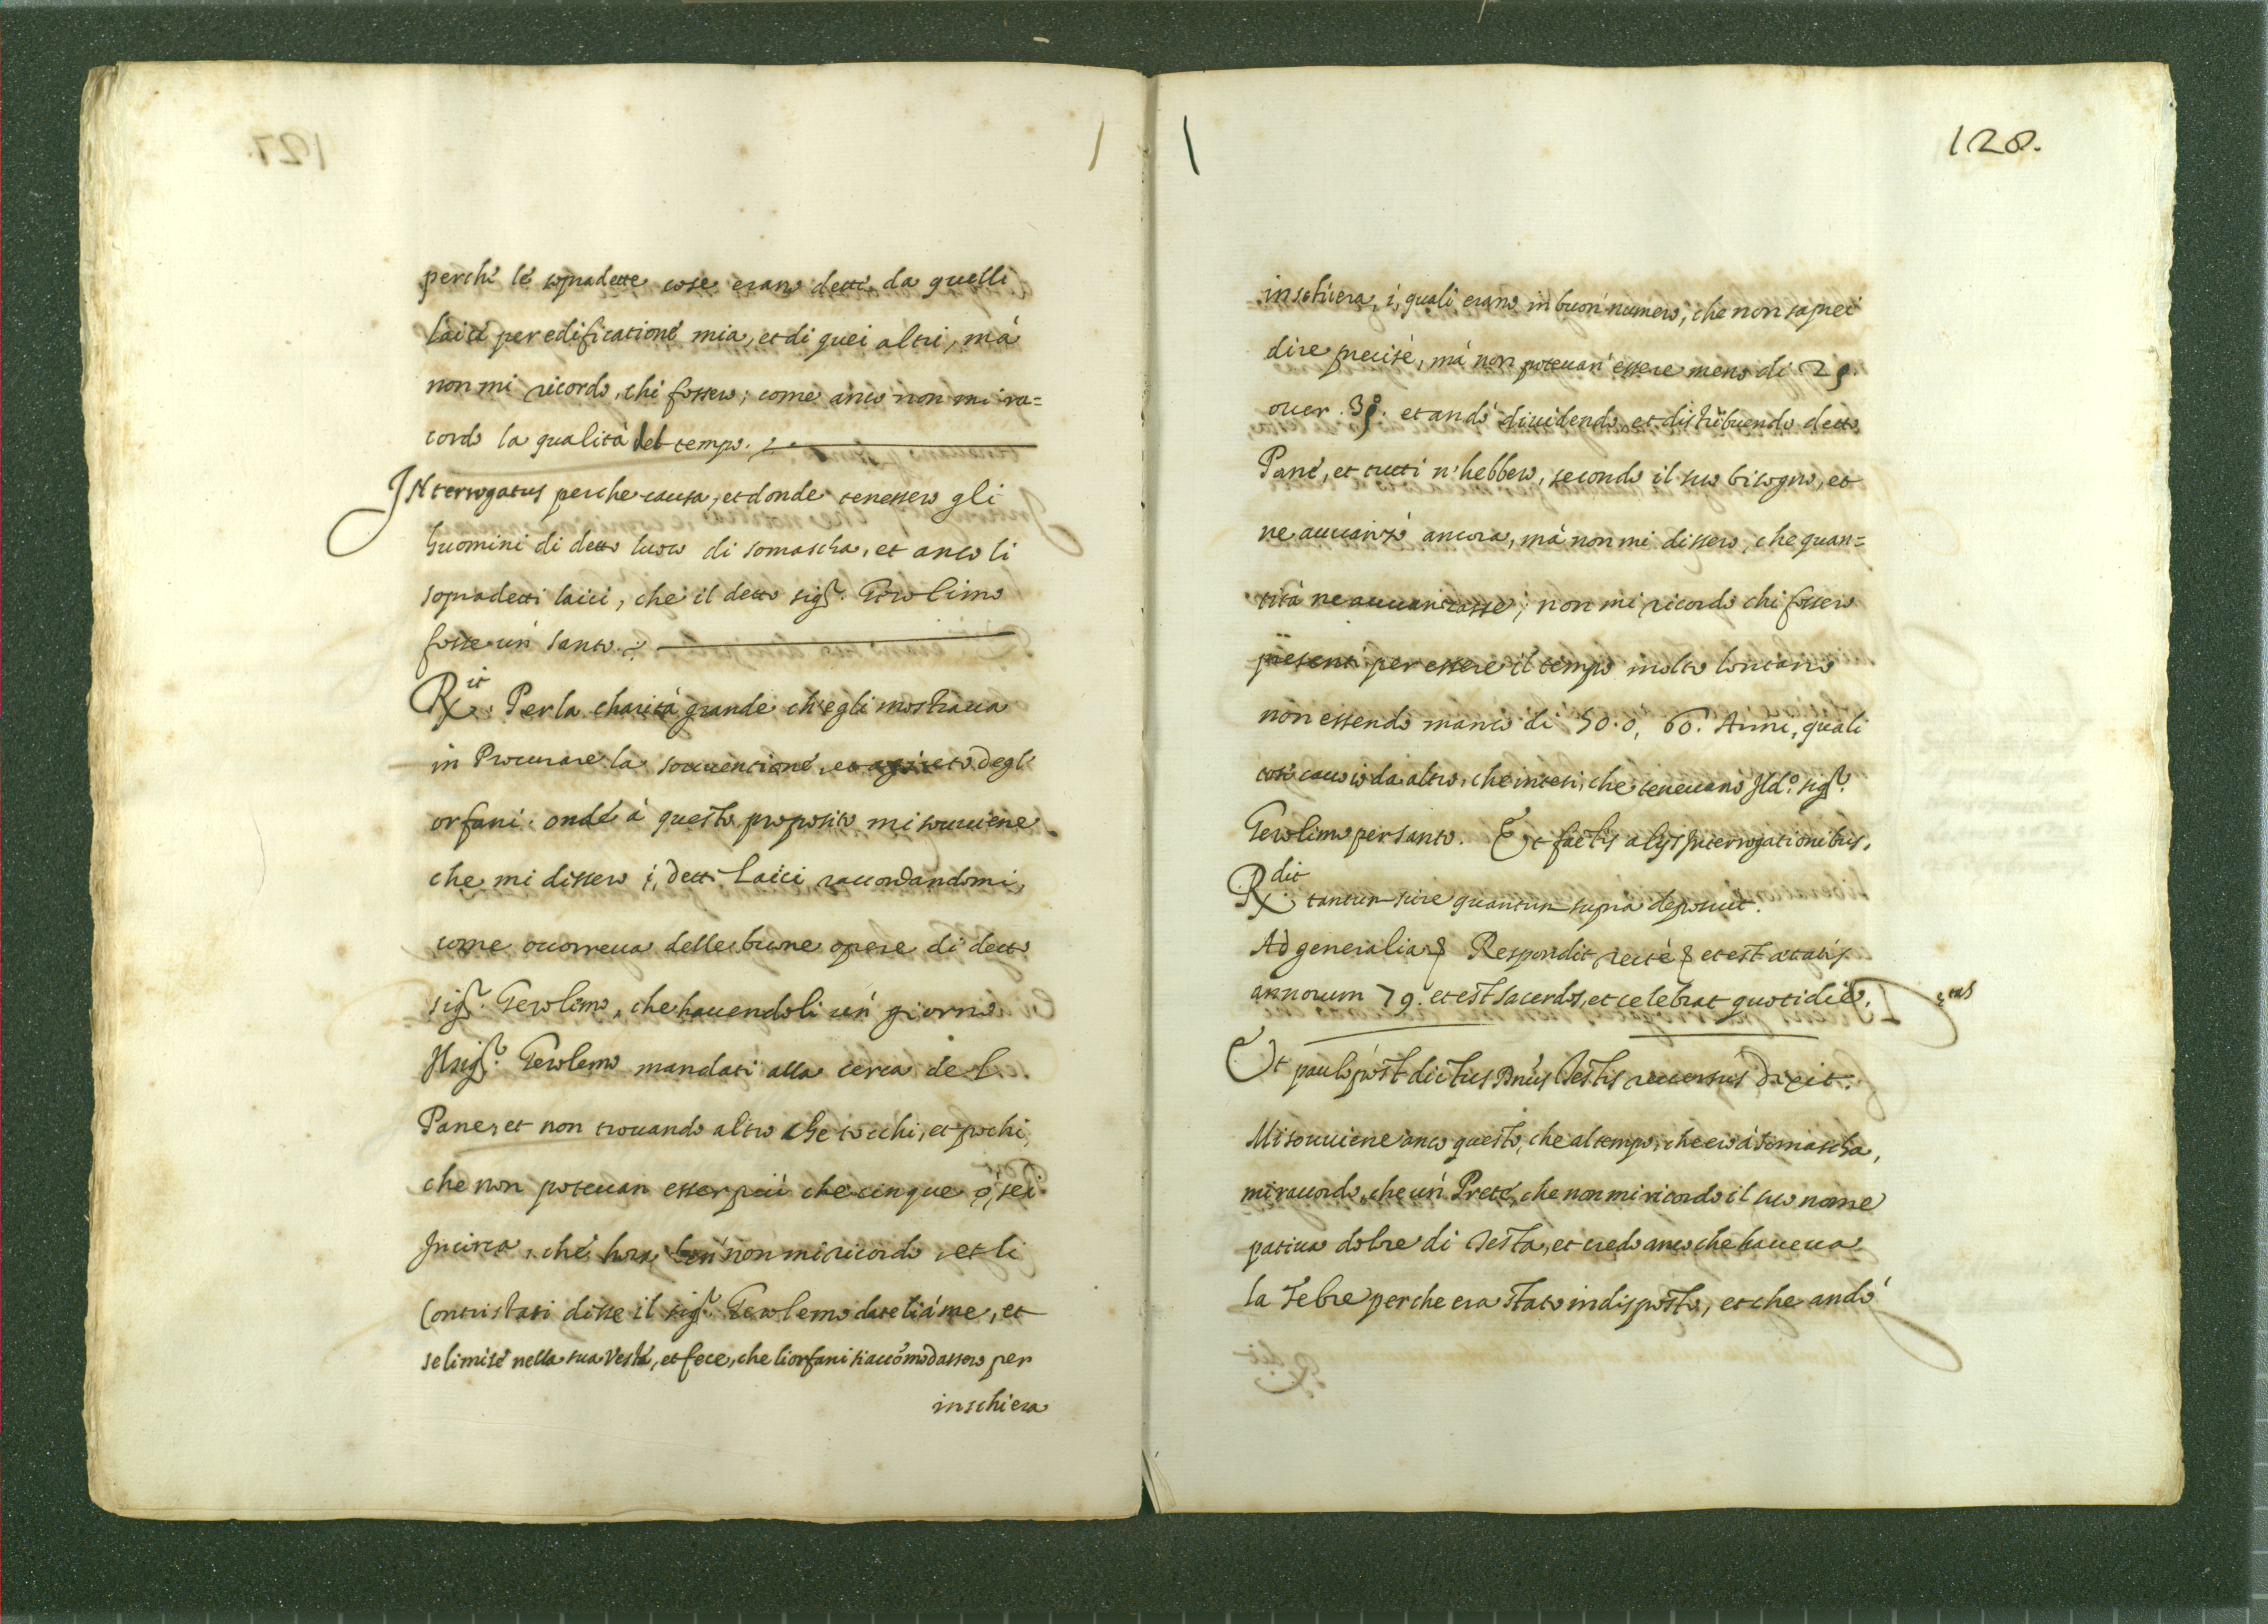 perche le sopradette cose erano dette da quelli
laici per edificatione mia, et di quei altri, mà
non mi ricordo, chi fossero; come anco non mi ra=
cordo la qualità del tempo.
INterrogatus per che causa, et donde tenessero gli
huomini di detto luoco di somascha, et anco li
sopradetti laici, che il detto sigr. Gerolimo
fosse un santo.
Rit. Per la charità grande ch'egli mostraua
in Procurare la souuentione, et degli
orfani. onde à questo proposito mi souuiene
che mi dissero i, detti Laici, raccordandomi,
come occorreua delle buone opere di detto
sigr. Gerolimo, che hauendoli un giorno
Il sigr. Gerolemo mandati alla cerca del
Pane, et non trouando altro che tocchi, et pochi,
che non poteuan esser più che cinque ò, sei
Incirca, che hora ben non mi ricordo, et li
Contristati disse il sigr. Gerolemo dateli à me, et
se li mise nella sua Veste, et fece, che li orfani si accomodassero per
inschiera
128.
inschiera, i, quali erano in buon numero, che non saprei
dire precise, mà non poteuan essere meno di 25.
ouer. 30. et andò diuidendo, et distribuendo detto
Pane, et tutti n'hebbero, secondo il suo bisogno, et
ne auuanzò ancora, mà non mi dissero, che quan=
tità ne auuanzasse; non mi ricordo chi fossero
presenti per essere il tempo molto lontano
non essendo manco di 50. o, 60. Anni, quali
cose cauo io da altro, che intesi, che teneuano Ild.o sigr.
Gerolimo per santo. Et factis alijs Interrogationibus,
Rdit tantum scire quantum supra deposuit.
Ad generalia Respondit recte et est aetatis
annorum 79. et est sacerdos, et celebrat quotidie.
Et paulo post dictus Dnus Testis reuersus dixit.
Mi souuiene anco questo, che al tempo, che ero à somascha,
mi raccordo, che un Prete, che non mi ricordo il suo nome
patiua dolore di Testa, et credo anco che haueua
la Febre perche era stato indisposto, et che andò